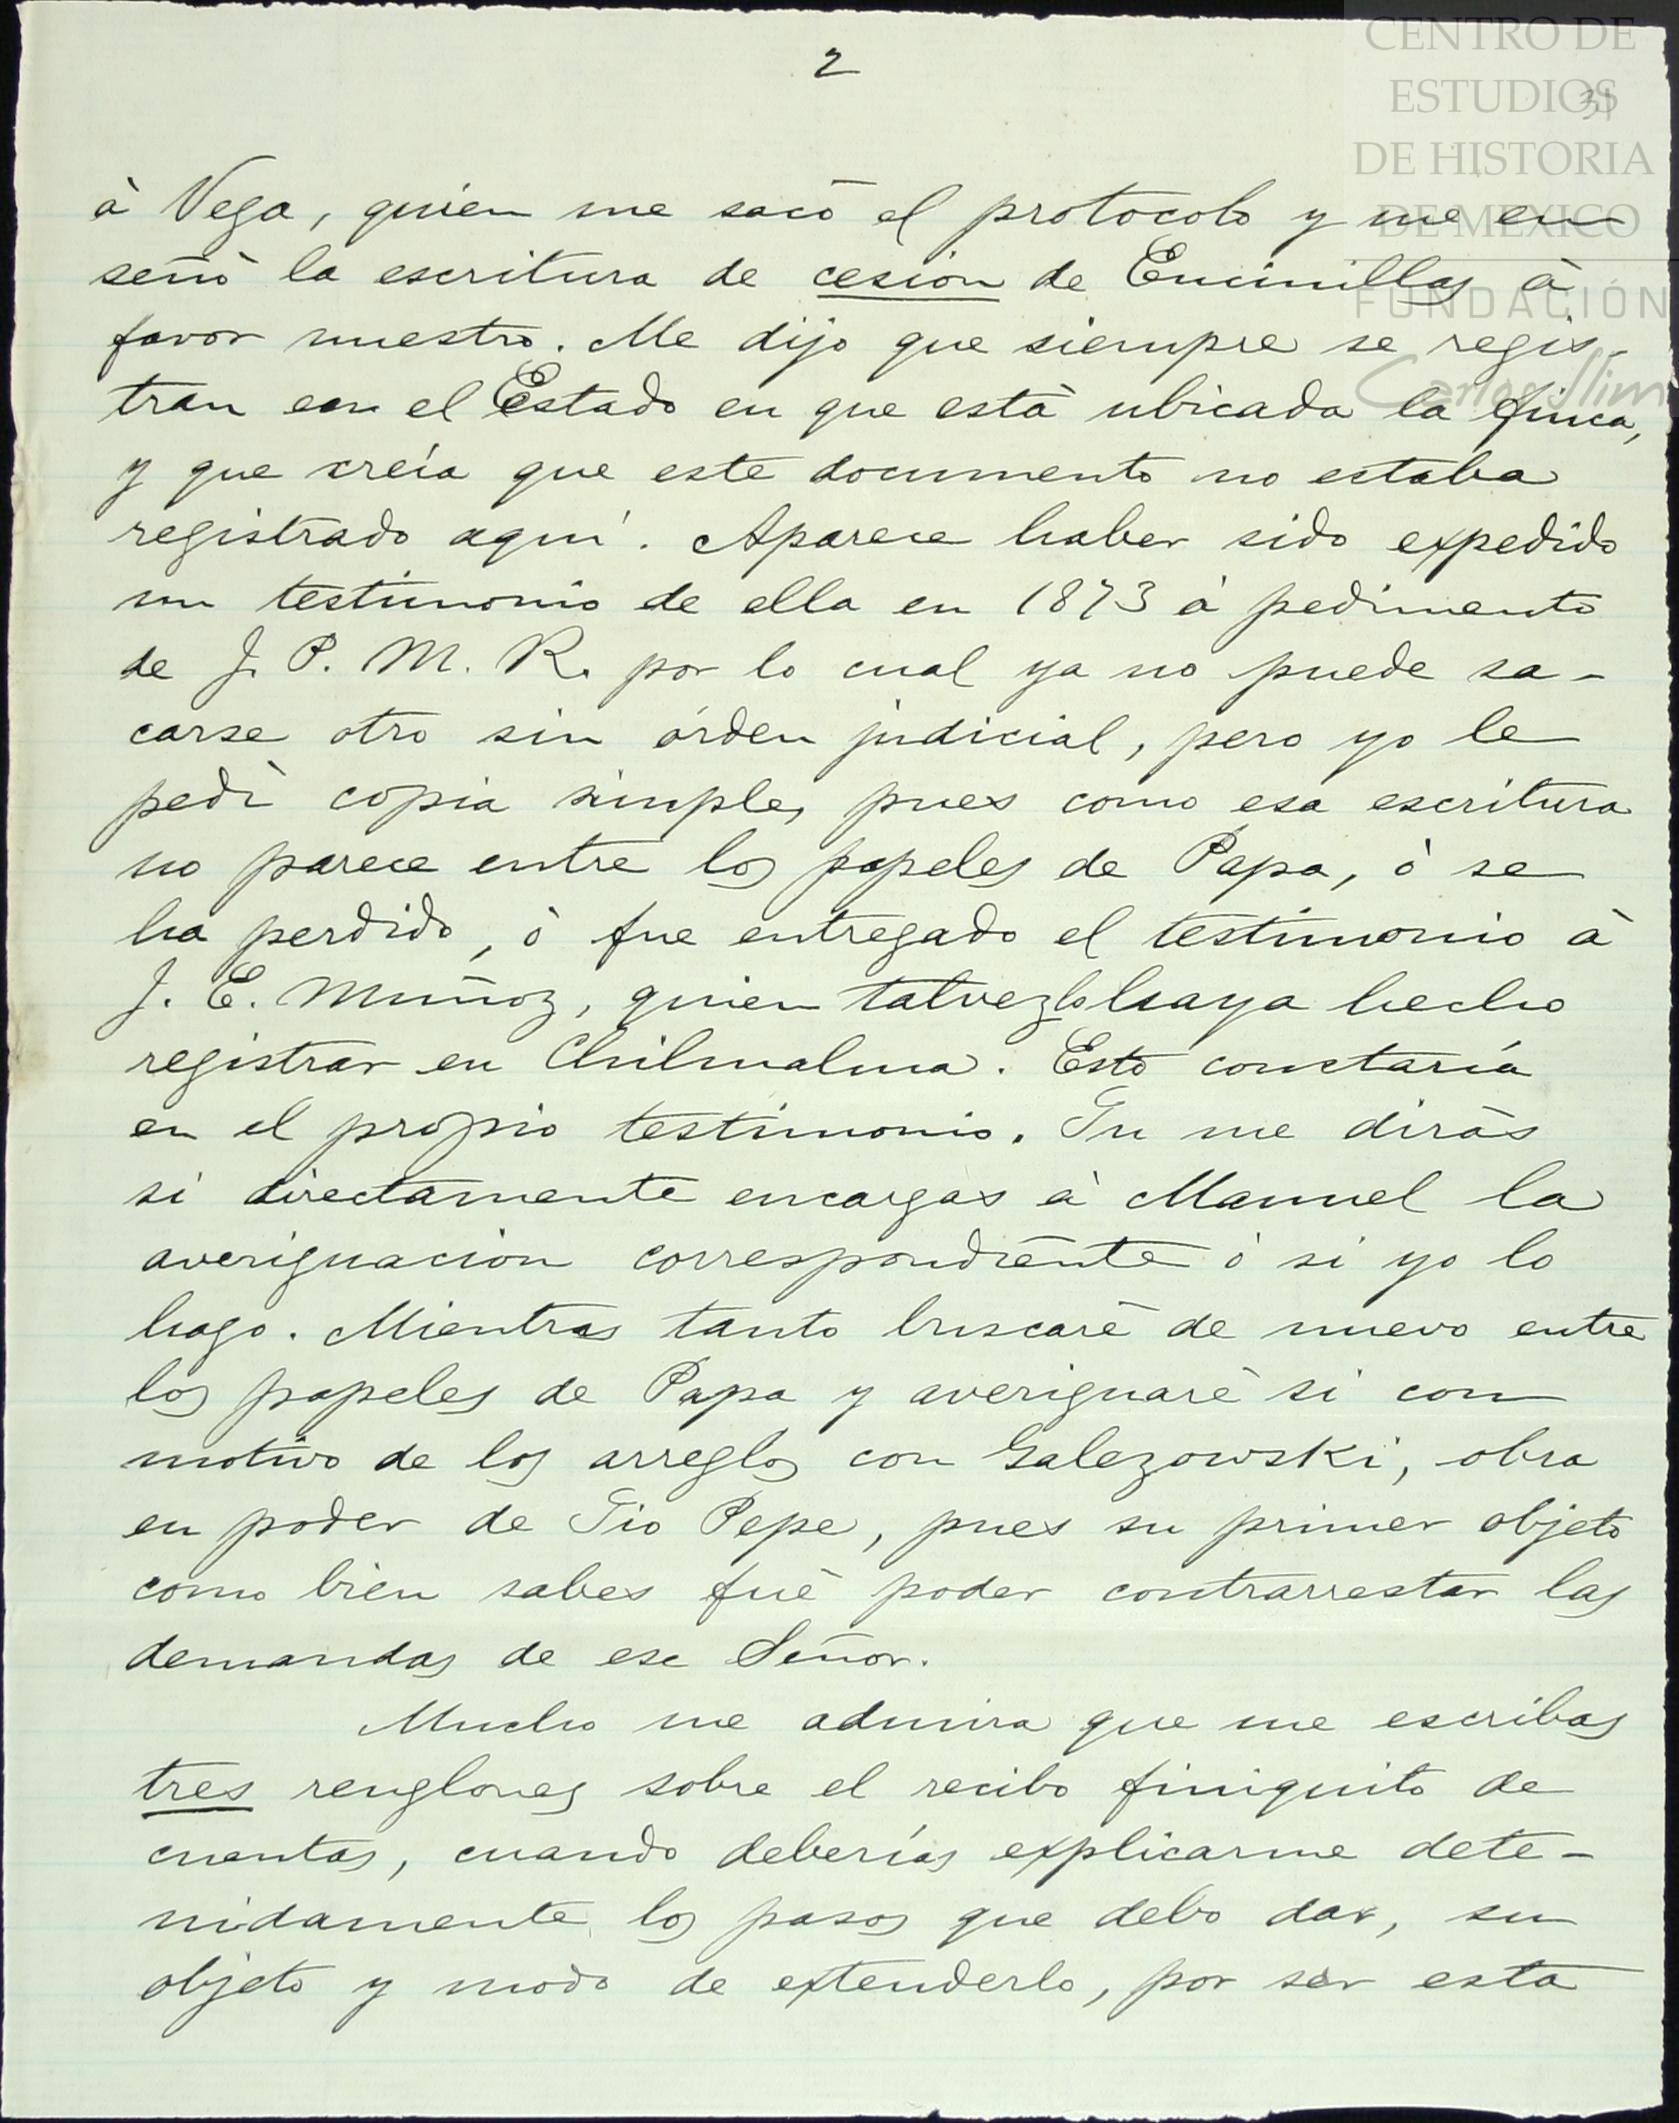 2
31
CENTRO DE
ESTUDIOS
DE HISTORIA
DE MEXICO
FUNDACIÓN
Carlos Slim
à Vega, quien me sacó el protocolo y me en
señò la escritura de cesion de Encinillas à
favor nuestro. Me dijo que siempre se regis-
tran en el Estado en que està ubicada la finca,
y que creía que este documento no estaba
registrado aquí. Aparece haber sido expedido
un testimonio de ella en 1873 à pedimento
de J. P. M. R. por lo cual ya no puede sa-
carse otro sin órden judicial, pero yo le
pedì copia simple, pues como esa escritura
no parece entre los papeles de Papa, ò se
ha perdido, ò fue entregado el testimonio à
J. E. Muñoz, quien talvez lo haya hecho
registrar en Chihuahua. Esto constaría
en el propio testimonio. Tu me diràs
si directamente encargas à Manuel la
averiguacion correspondiente ò si yo lo
hago. Mientras tanto buscarè de nuevo entre
los papeles de Papa y averiguarè si con
motivo de los arreglos con Galezowski, obra
en poder de Tio Pepe, pues su primer objeto
como bien sabes fuè poder contrarrestar las
demandas de ese Señor.
Mucho me admira que me escribas
tres renglones sobre el recibo finiquito de
cuentas, cuando deberías explicarme dete-
nidamente los pasos que debo dar, su
objeto y modo de extenderlo, por ser esta